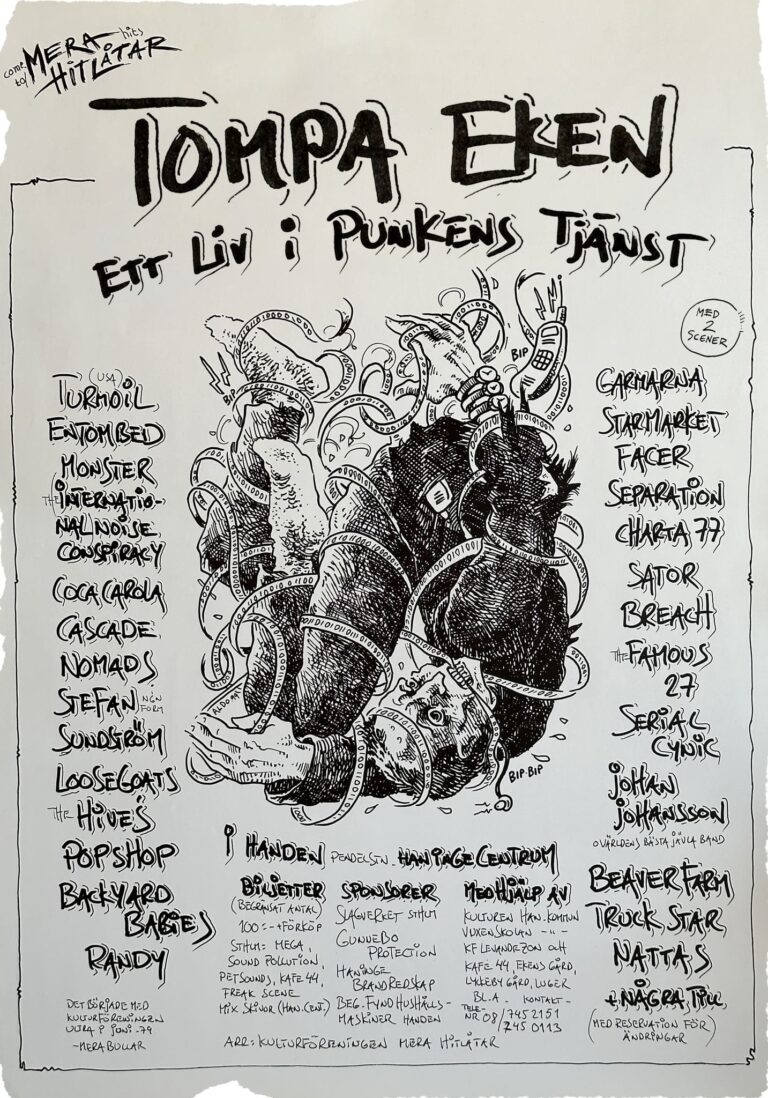 come to/
MERA
hits
HITLÅTAR
TOMPA EKEN
ETT LIV I PUNKENS TJÄNST
MED
2
SCENER
BIP
BIP
BIP-BIP
(USA)
TURMOIL
ENTOMBED
MONSTER
THE INTERNATIO-
NAL NOISE
CONSPIRACY
COCA CAROLA
CASCADE
NOMADS
STEFAN NÅN FORM
SUNDSTRÖM
LOOSEGOATS
THE HIVES
POPSHOP
BACKYARD
BABIES
RANDY
DET BÖRJADE MED
KULTURFÖRENINGEN
ULTRA I JUNI -79
-MERA BULLAR
GARMARNA
STARMARKET
FACER
SEPARATION
CHARTA 77
SATOR
BREACH
THE FAMOUS
27
SERIAL
CYNIC
JOHAN
JOHANSSON
O VÄRLDENS BÄSTA JÄVLA BAND
BEAVER FARM
TRUCK STAR
NATTAS
+ NÅGRA TILL
(MED RESERVATION FÖR
ÄNDRINGAR)
I HANDEN PENDELSTN. HANINGE CENTRUM
BILJETTER
(BEGRÄNSAT ANTAL)
100:- +FÖRKÖP
STHLM: MEGA,
SOUND POLLUTION,
PETSOUNDS, KAFE 44,
FREAK SCENE
MIX SKIVOR (HAN.CENT.)
SPONSORER
SLAGVERKET STHLM
GUNNEBO
PROTECTION
HANINGE
BRANDREDSKAP
BEG. FYND HUSHÅLLS-
MASKINER HANDEN
MED HJÄLP AV
KULTUREN HAN. KOMMUN
VUXENSKOLAN -"-
KF LEVANDEZON OCH
KAFÉ 44, EKENS GÅRD,
LYCKEBY GÅRD, LUGER
BL.A. KONTAKT-
TELE-
NR 08/745 2151
745 0113
ARR: KULTURFÖRENINGEN MERA HITLÅTAR